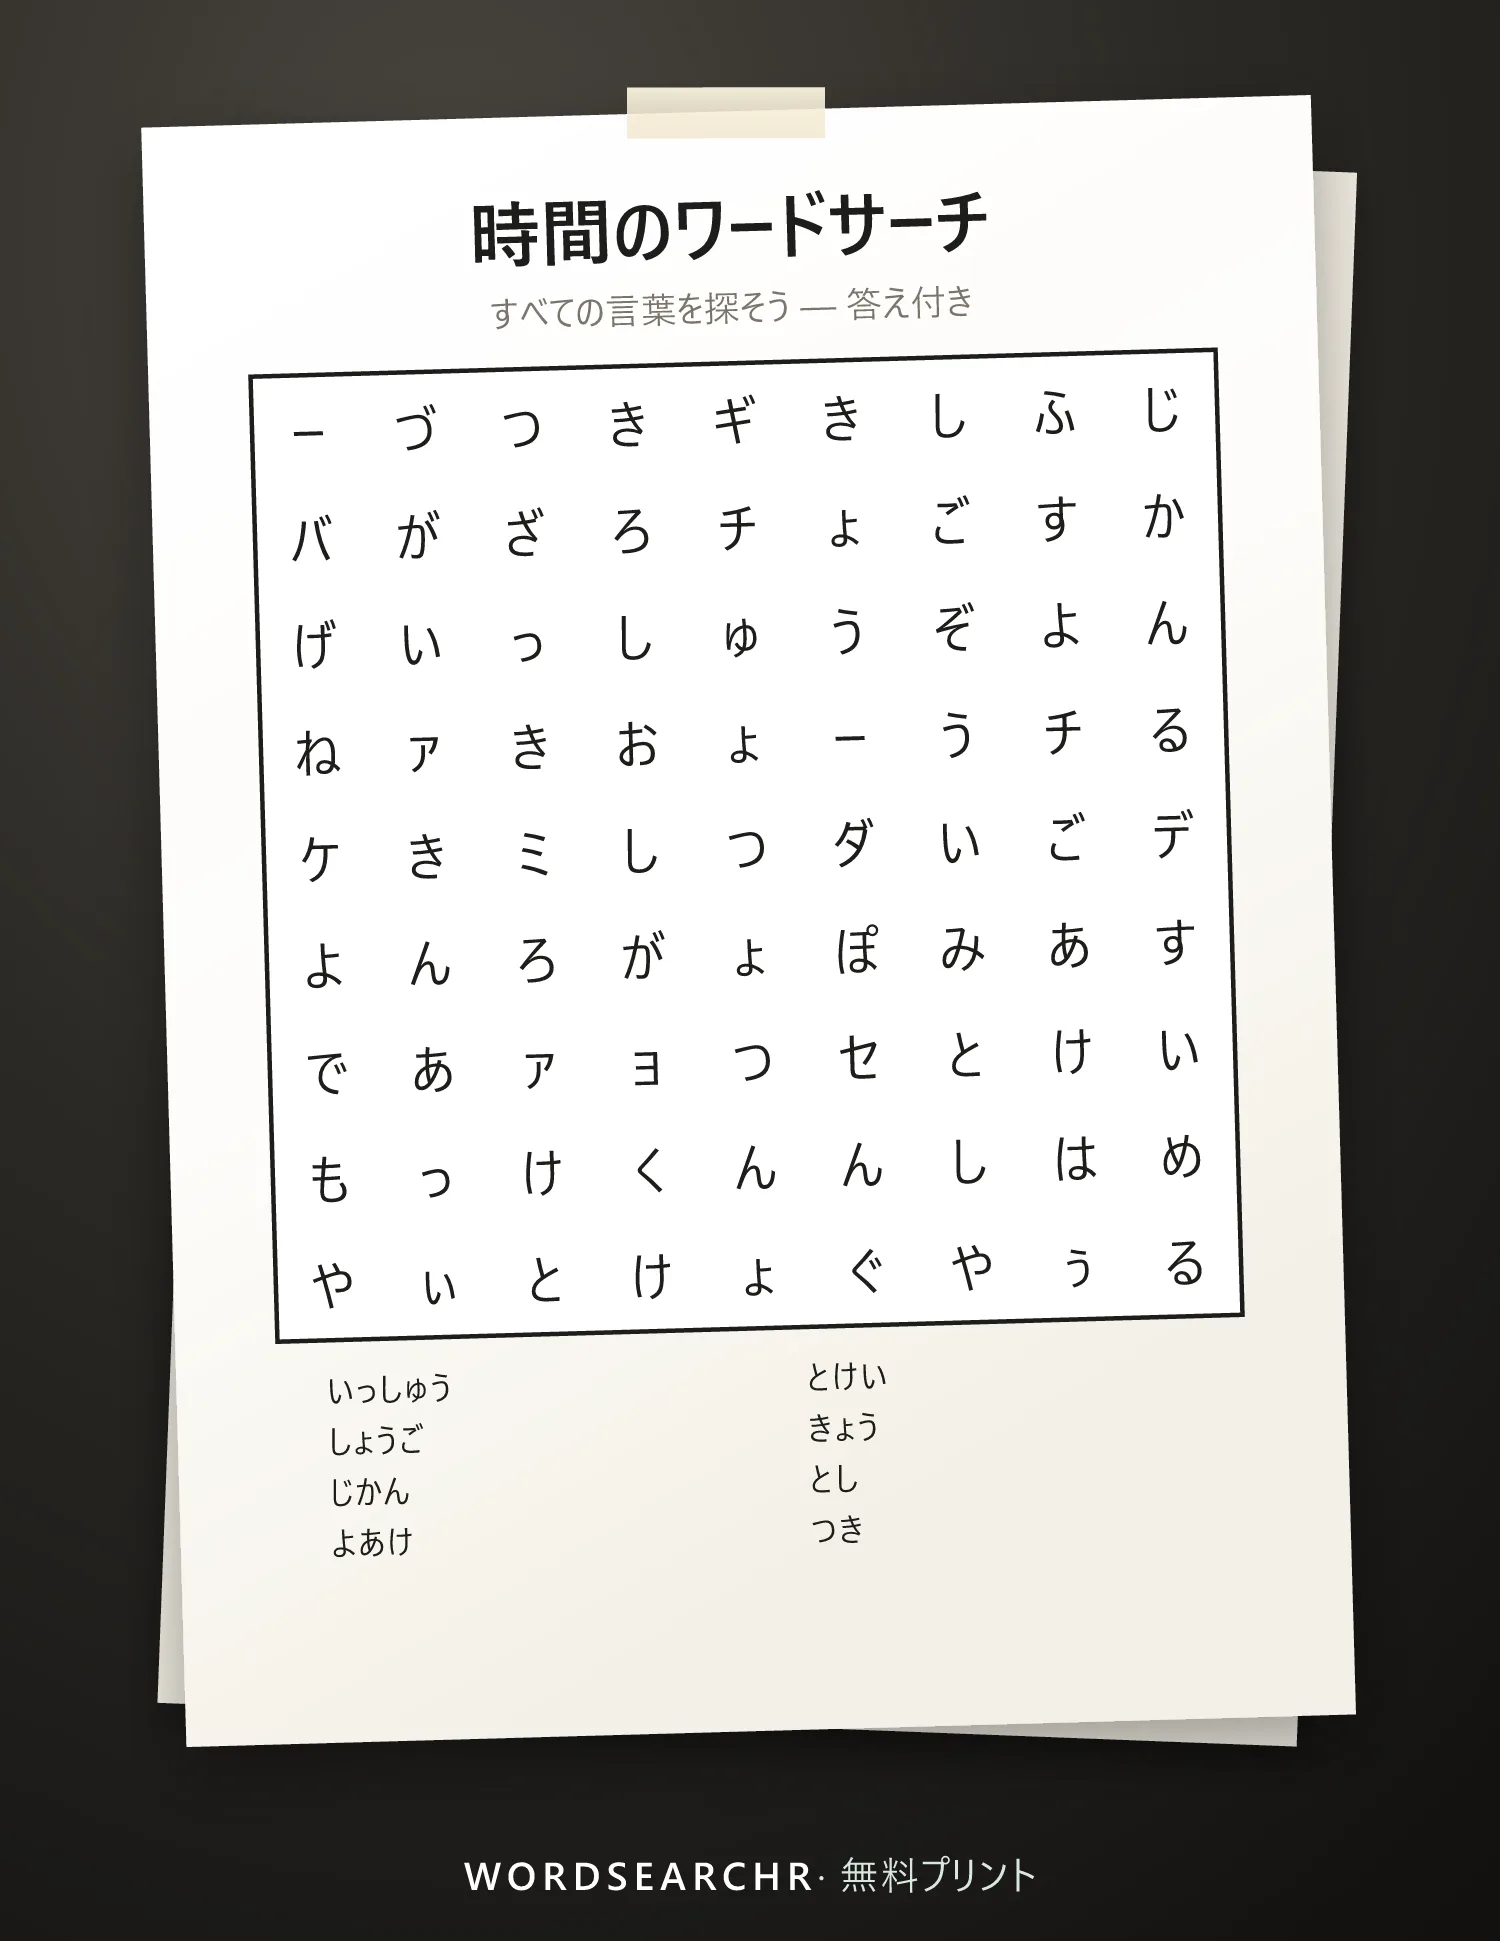 時間のワードサーチ
すべての言葉を探そう — 答え付き
ー づ つ き ギ き し ふ じ
バ が ざ ろ チ ょ ご す か
げ い っ し ゅ う ぞ よ ん
ね ァ き お ょ ー う チ る
ケ き ミ し つ ダ い ご デ
よ ん ろ が ょ ぽ み あ す
で あ ァ ョ つ セ と け い
も っ け く ん ん し は め
や ぃ と け ょ ぐ や ぅ る
いっしゅう
しょうご
じかん
よあけ
とけい
きょう
とし
つき
WORDSEARCHR · 無料プリント